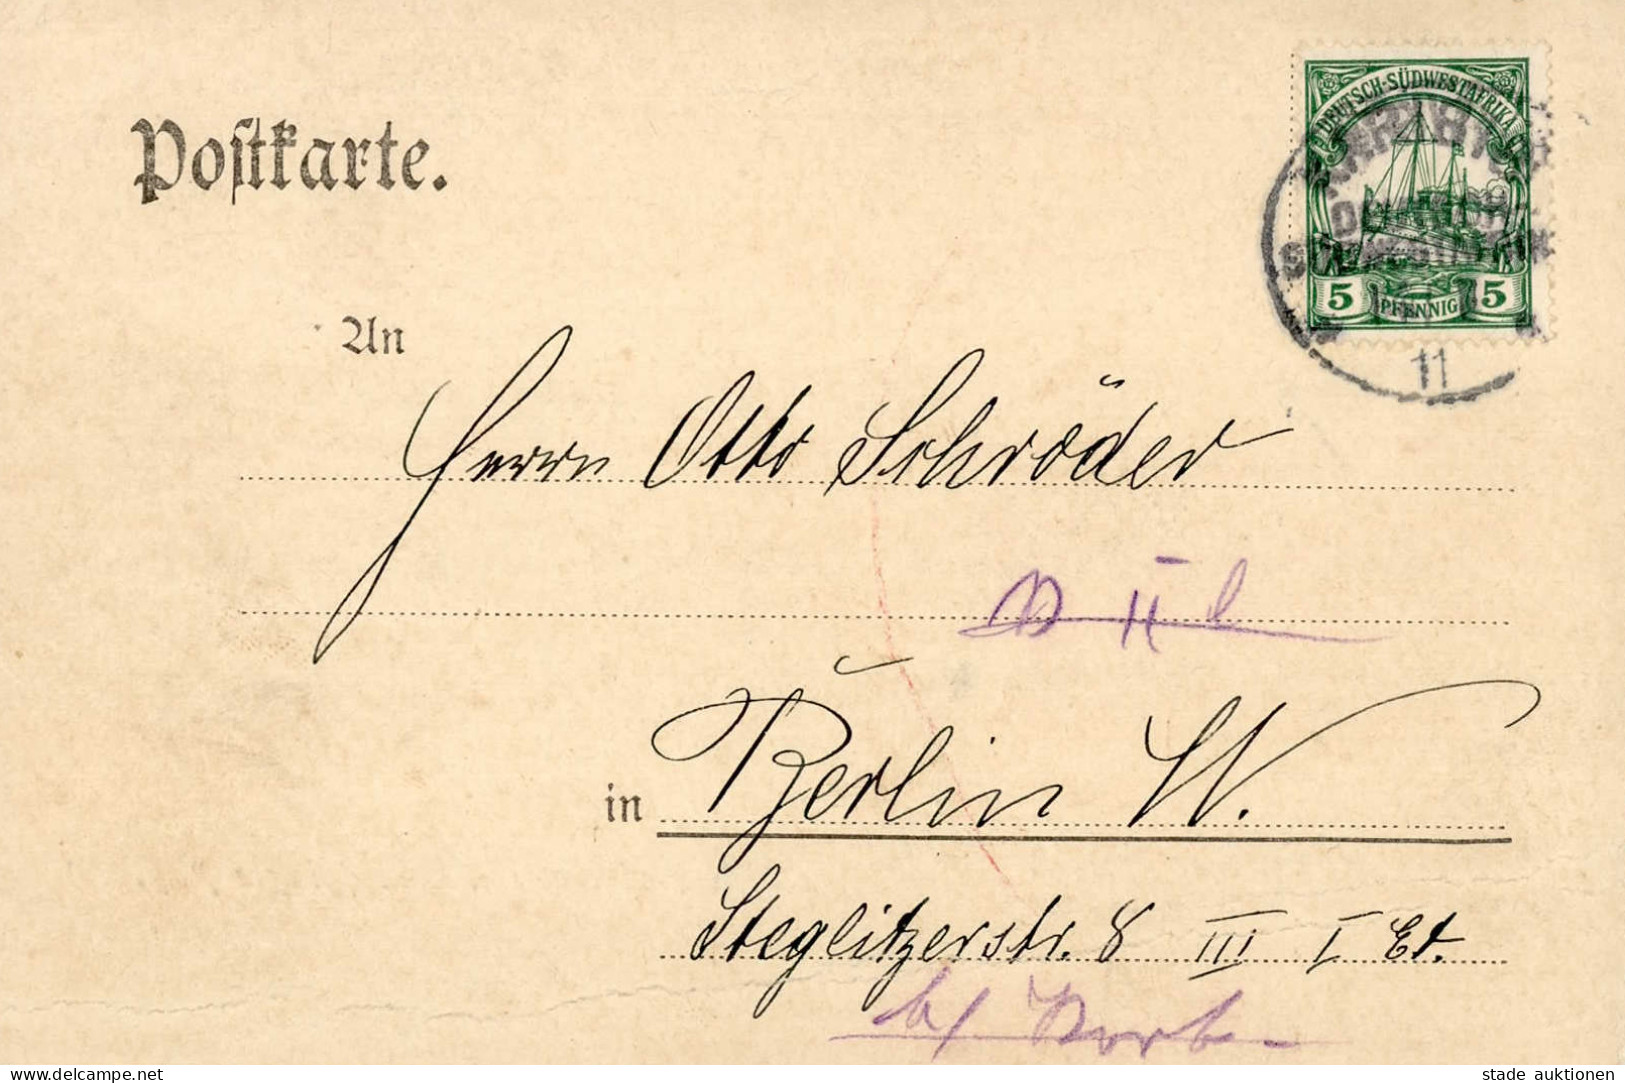 Postkarte.
DEUTSCH-SÜDWESTAFRIKA
5 PFENNIG 5
11
An
Herrn Otto Schröder
II
in Berlin W.
Steglitzerstr. 8 III I Et.
b/
stade auktionen
www.delcampe.net